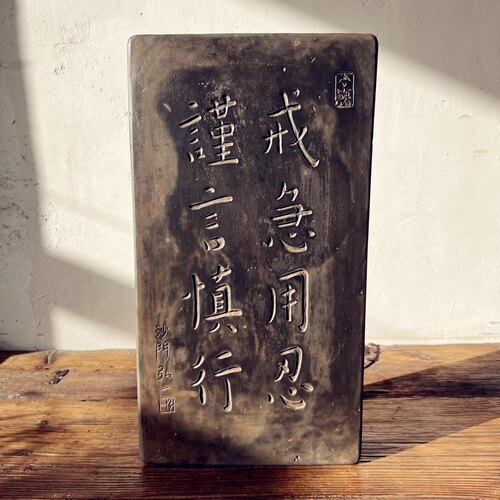 戒急用忍
謹言慎行
沙門弘一